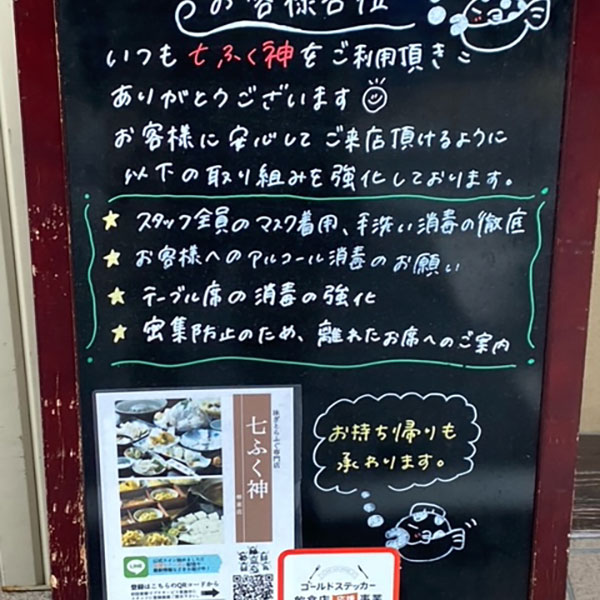 お客様各位
いつも七ふく神をご利用頂き
ありがとうございます
お客様に安心してご来店頂けるように
以下の取り組みを強化しております。
★ スタッフ全員のマスク着用、手洗い消毒の徹底
★ お客様へのアルコール消毒のお願い
★ テーブル席の消毒の強化
★ 密集防止のため、離れたお席へのご案内
お持ち帰りも
承わります。
七ふく神
LINE
登録はこちらのQRコードから
ゴールドステッカー
飲食店応援事業